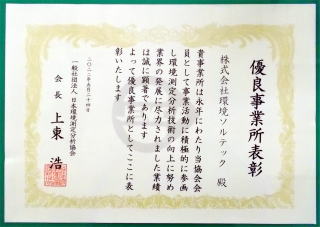 優良事業所表彰
株式会社環境ソルテック 殿
貴事業所は永年にわたり当協会会
員として事業活動に積極的に参画
し環境測定分析技術の向上に努め
業界の発展に尽力されました業績
は誠に顕著であります
よって優良事業所としてここに表
彰いたします
一般社団法人 日本環境測定分析協会
会長 上東 浩